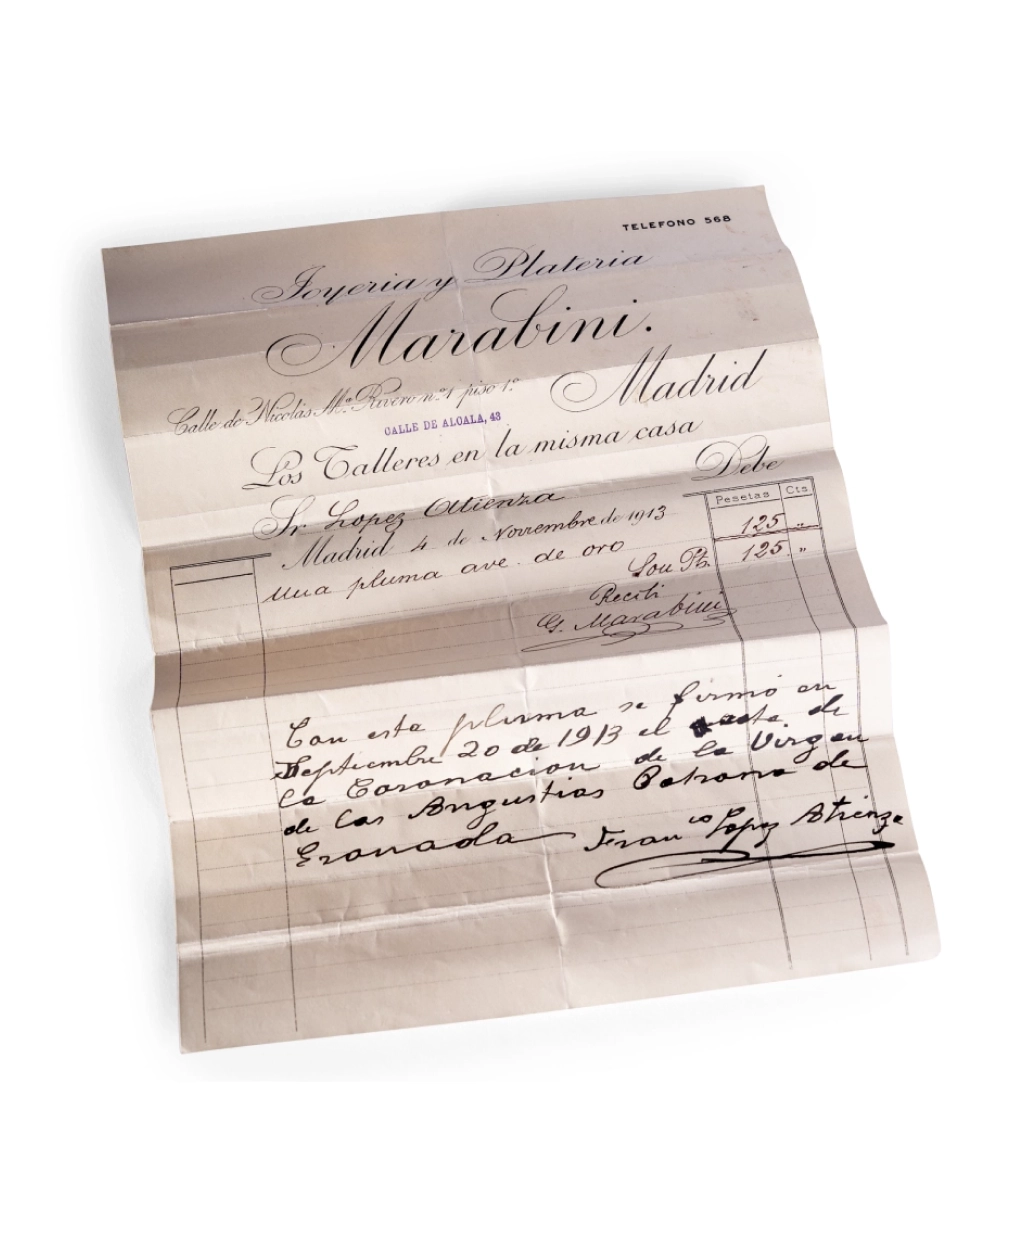 TELEFONO 568
Joyeria y Plateria
Marabini.
Calle de Nicolás Mª Rivero nº 1 piso 1º
Madrid
CALLE DE ALCALA, 43
Los Talleres en la misma casa
Debe
Sr. Lopez Atienza
Pesetas Cts
Madrid 4 de Noviembre de 1913
Una pluma ave. de oro 125 "
Son Pts. 125 "
Recibi
G. Marabini
Con esta pluma se firmó en
Septiembre 20 de 1913 el acta de
la Coronacion de la Virgen
de las Angustias Patrona de
Granada
Franco Lopez Atienza